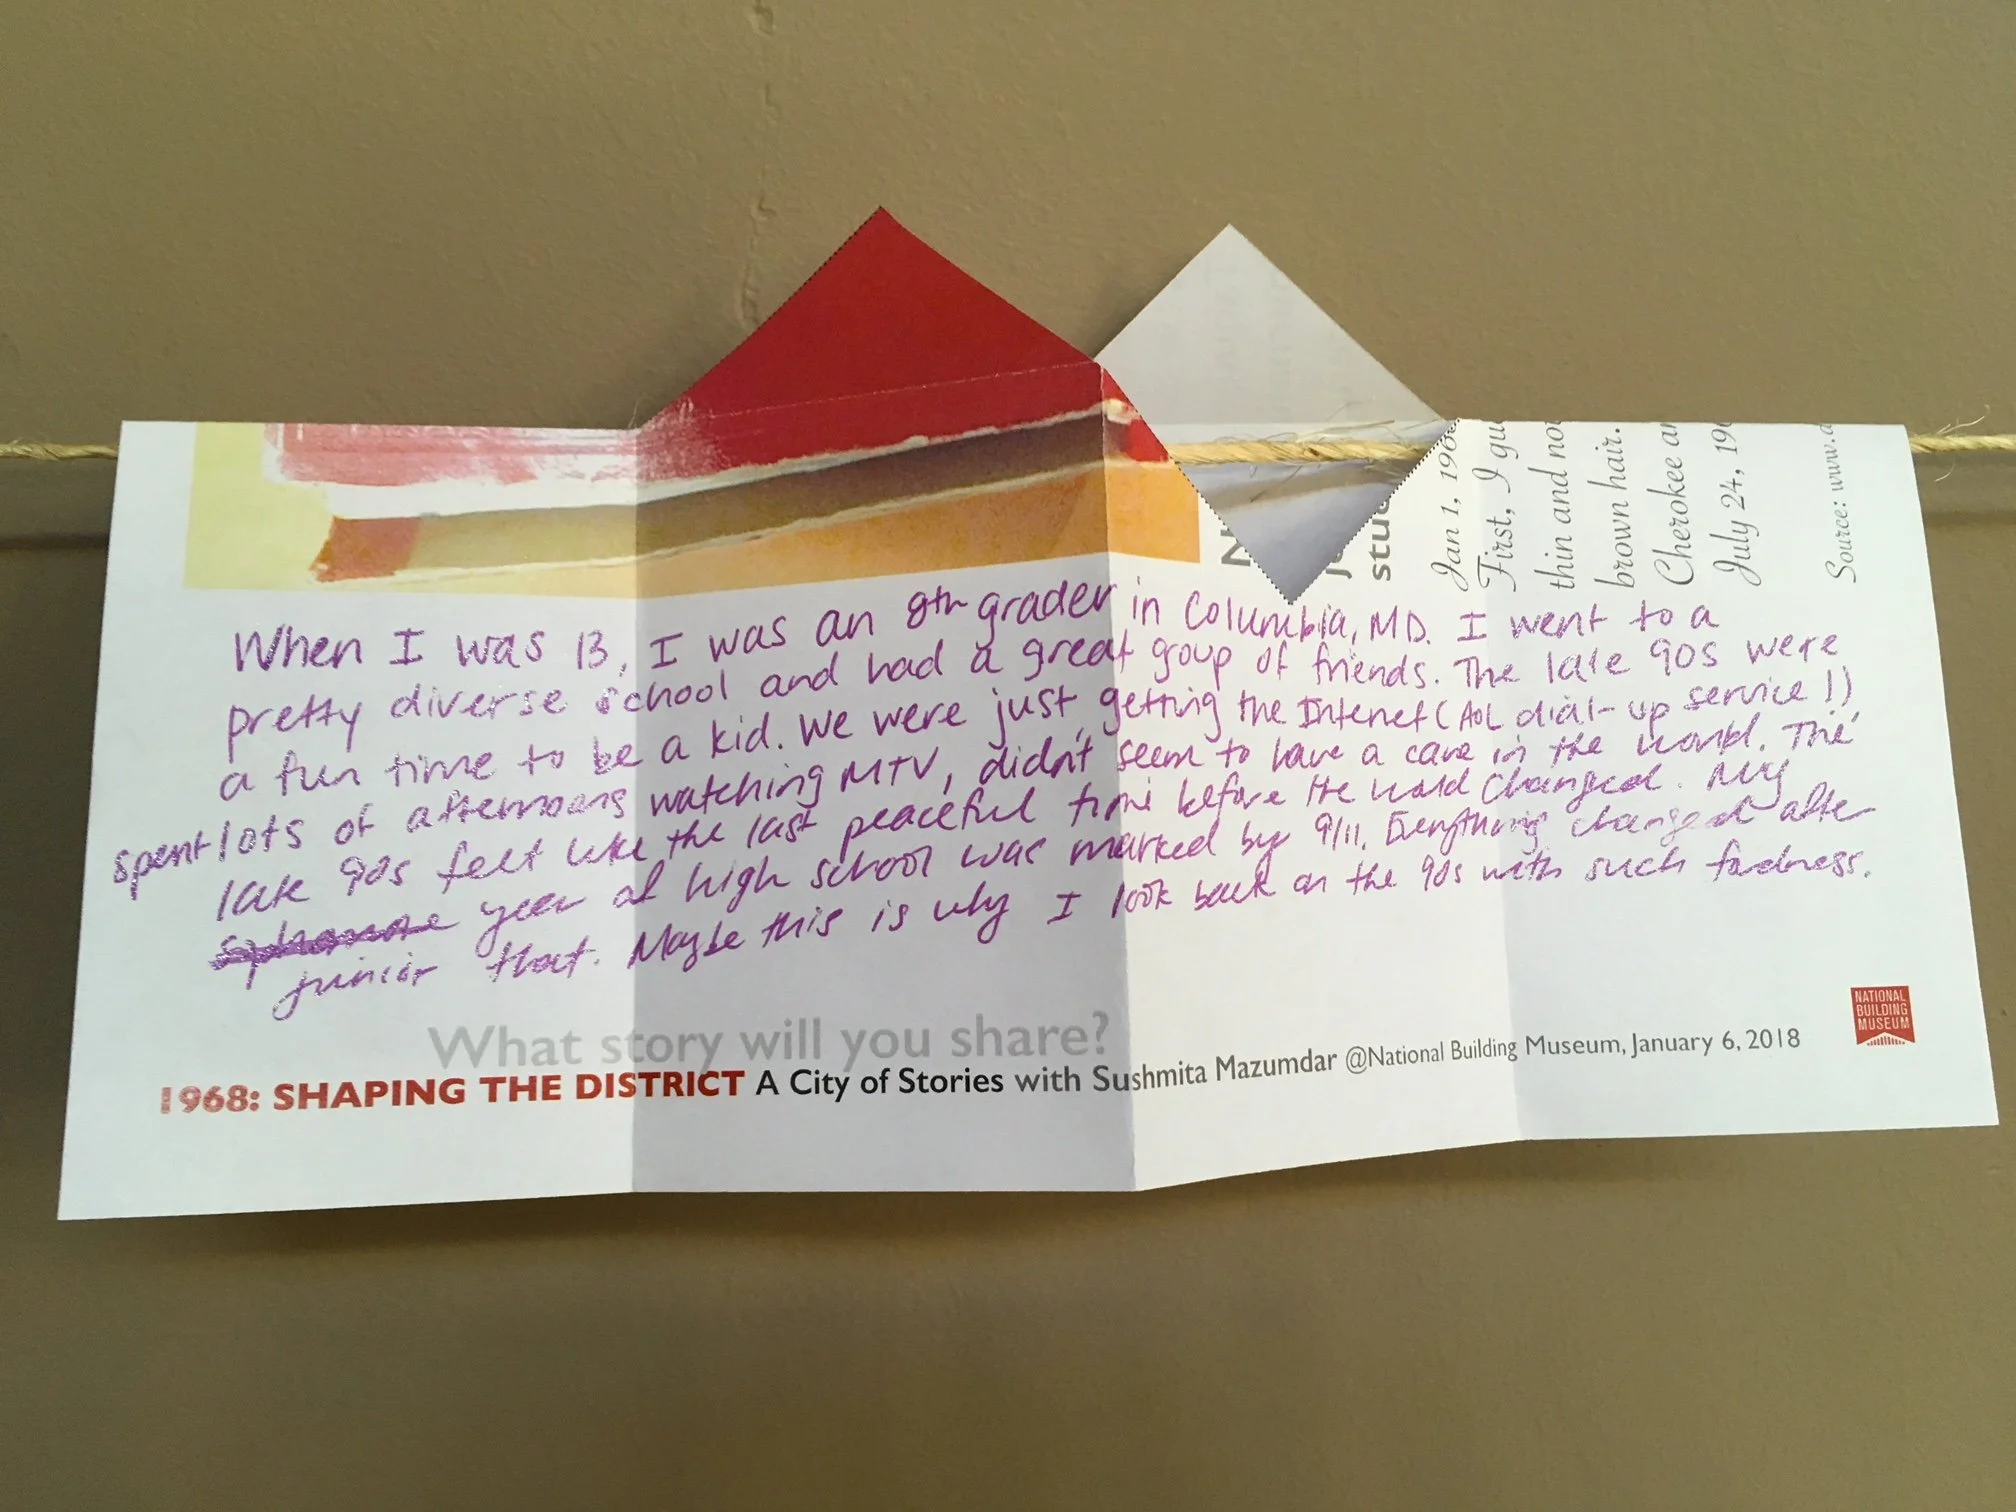 Jan 1, 196
First, I gu
thin and no
brown hair.
Cherokee a
July 24, 19
Source: www.a
stu
When I was 13, I was an 8th grader in Columbia, MD. I went to a
pretty diverse school and had a great group of friends. The late 90s were
a fun time to be a kid. We were just getting the Internet (AOL dial-up service!)
spent lots of afternoons watching MTV, didn't seem to have a care in the world. The
late 90s felt like the last peaceful time before the world changed. My
sophomore year of high school was marked by 9/11. Everything changed after
junior that. Maybe this is why I look back on the 90s with such fondness.
What story will you share?
1968: SHAPING THE DISTRICT A City of Stories with Sushmita Mazumdar @National Building Museum, January 6, 2018
NATIONAL
BUILDING
MUSEUM